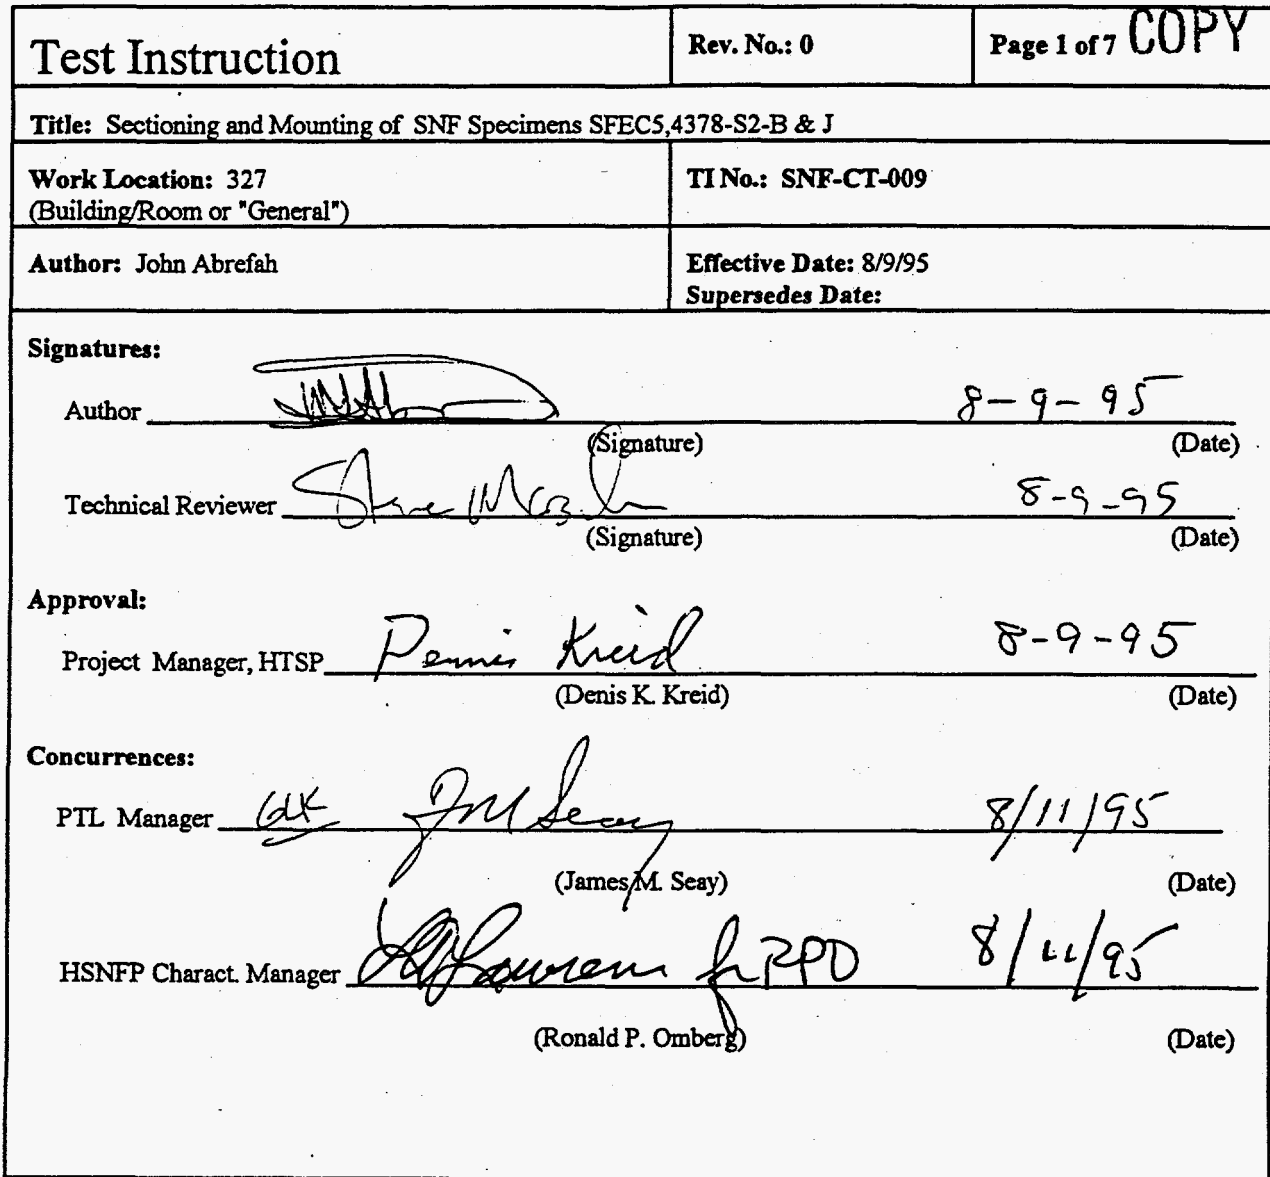 Test Instruction
Rev. No.: 0
Page 1 of 7 COPY
Title: Sectioning and Mounting of SNF Specimens SFEC5,4378-S2-B & J
Work Location: 327
(Building/Room or "General")
TI No.: SNF-CT-009
Author: John Abrefah
Effective Date: 8/9/95
Supersedes Date:
Signatures:
Author 8-9-95
(Signature) (Date)
Technical Reviewer Steve 8-9-95
(Signature) (Date)
Approval:
Project Manager, HTSP Dennis Kreid 8-9-95
(Denis K. Kreid) (Date)
Concurrences:
PTL Manager JM Seay 8/11/95
(James M. Seay) (Date)
HSNFP Charact. Manager 8/11/95
(Ronald P. Omberg) (Date)